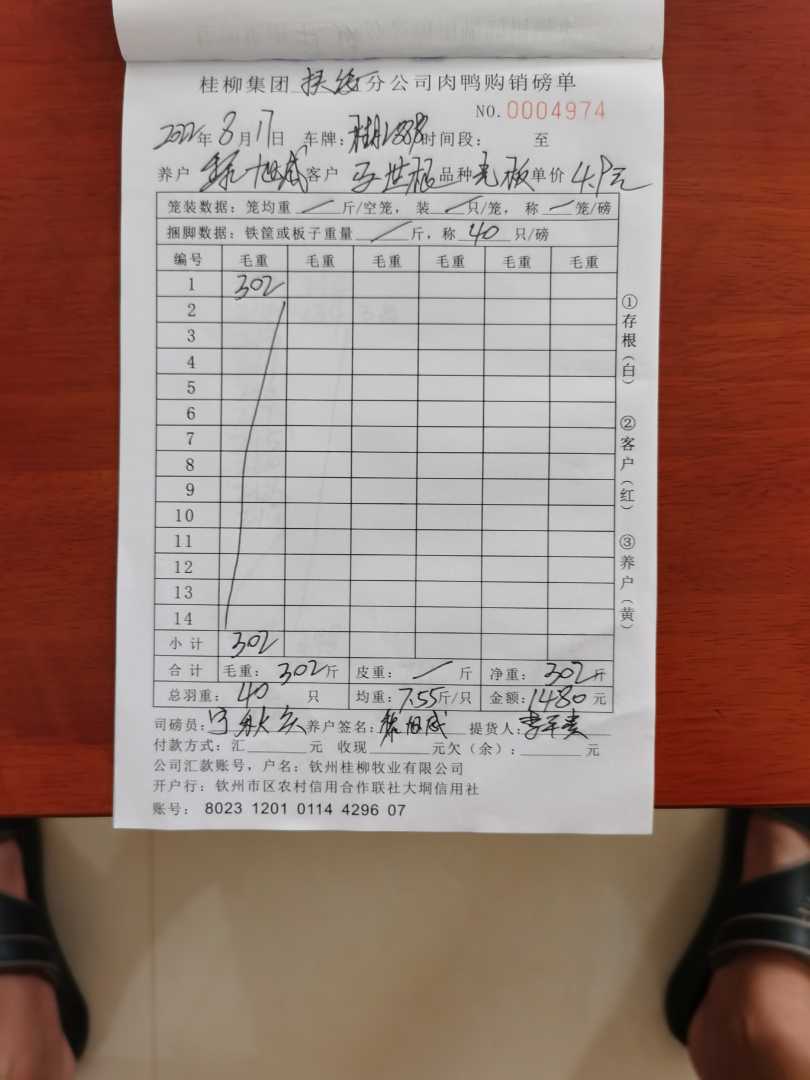 桂柳集团 扶绥 分公司肉鸭购销磅单
NO.0004974
2022年8月17日 车牌: 时间段: 至
养户 旭威 客户 世根 品种 毛板 单价 4.9元
笼装数据: 笼均重 / 斤/空笼, 装 / 只/笼, 称 / 笼/磅
捆脚数据: 铁筐或板子重量 / 斤, 称 40 只/磅
编号 毛重 毛重 毛重 毛重 毛重 毛重
1 302
2
3
4
5
6
7
8
9
10
11
12
13
14
小计 302
合计 毛重: 302斤 皮重: / 斤 净重: 302斤
总羽重: 40 只 均重: 7.55斤/只 金额: 1480元
司磅员: 养户签名: 旭威 提货人:
付款方式: 汇 元 收现 元欠(余): 元
公司汇款账号, 户名: 钦州桂柳牧业有限公司
开户行: 钦州市区农村信用合作联社大垌信用社
账号: 8023 1201 0114 4296 07
①存根(白)
②客户(红)
③养户(黄)